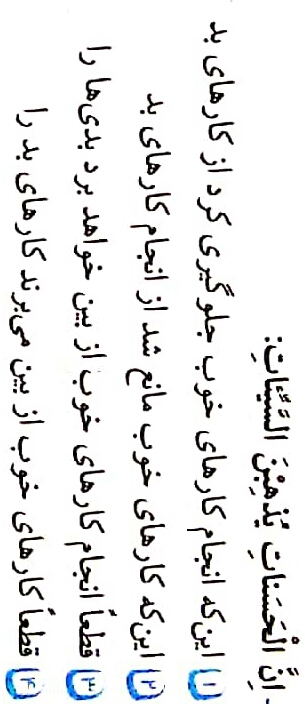 - اِنَّ الْحَسَناتِ یُذهِبْنَ السَّیِّئاتِ:
۱ این‌که انجام کارهای خوب جلوگیری کرد از کارهای بد
۲ این‌که کارهای خوب مانع شد از انجام کارهای بد
۳ قطعاً انجام کارهای خوب از بین خواهد برد بدی‌ها را
۴ قطعاً کارهای خوب از بین می‌برند کارهای بد را